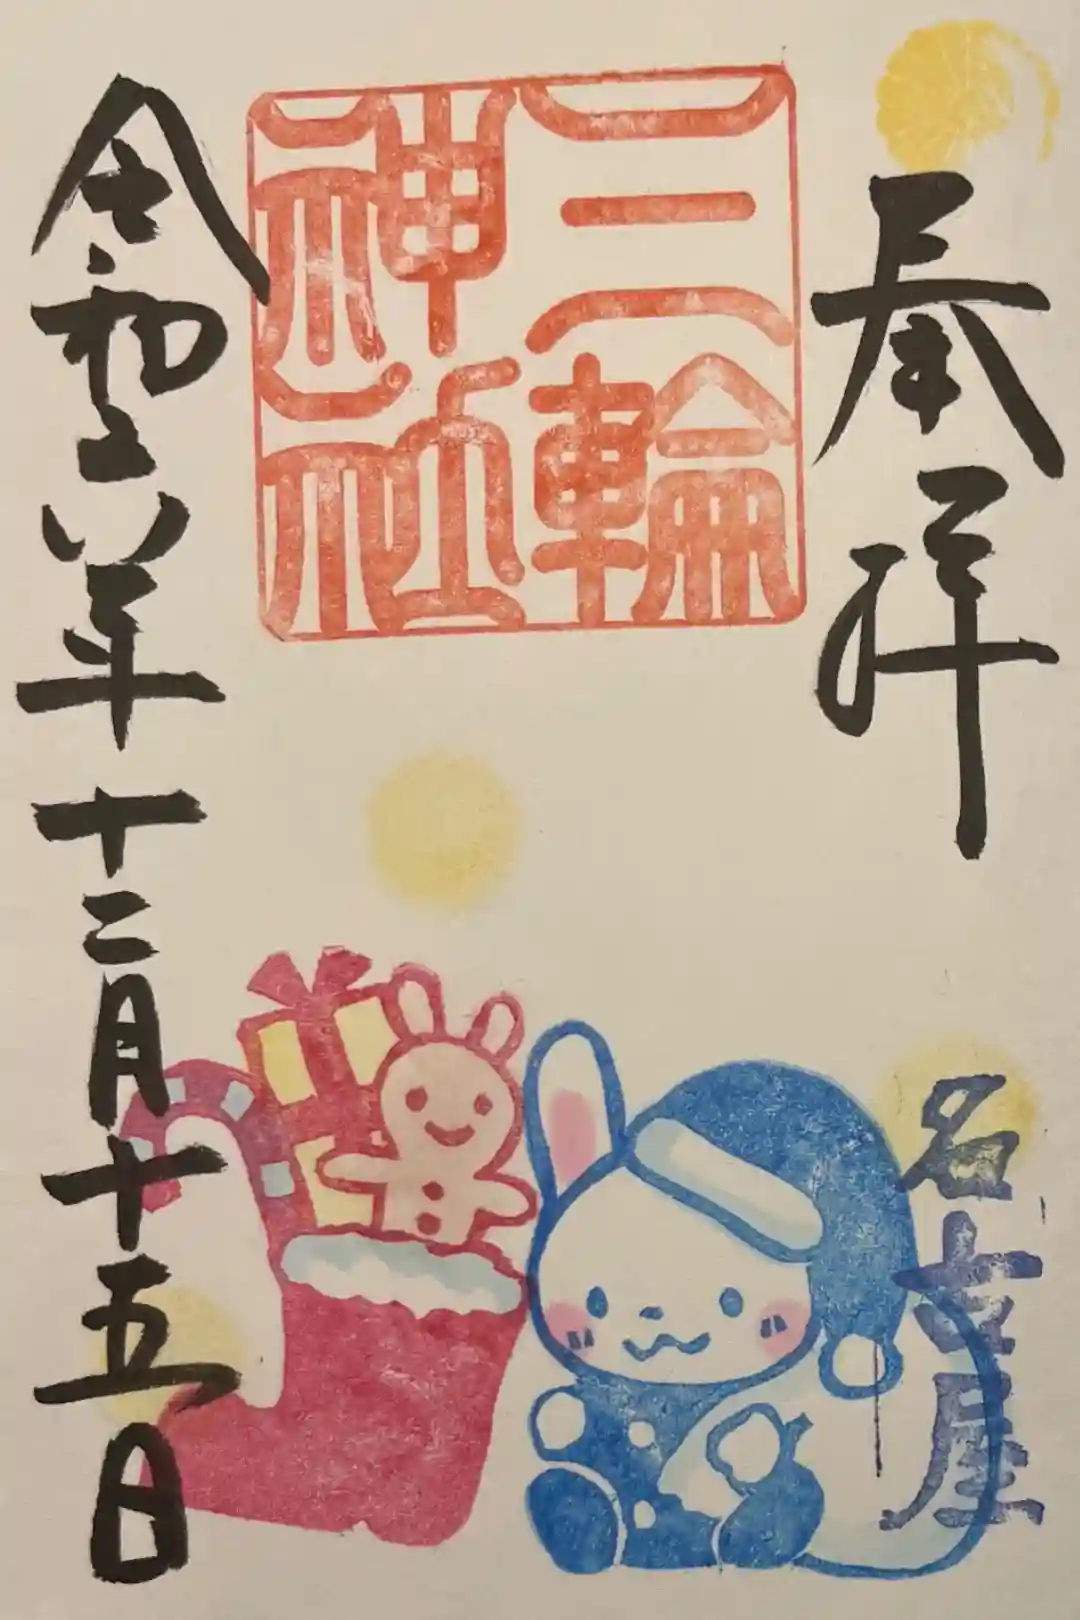 奉拝
名古屋
三輪
神社
令和六年十二月十五日